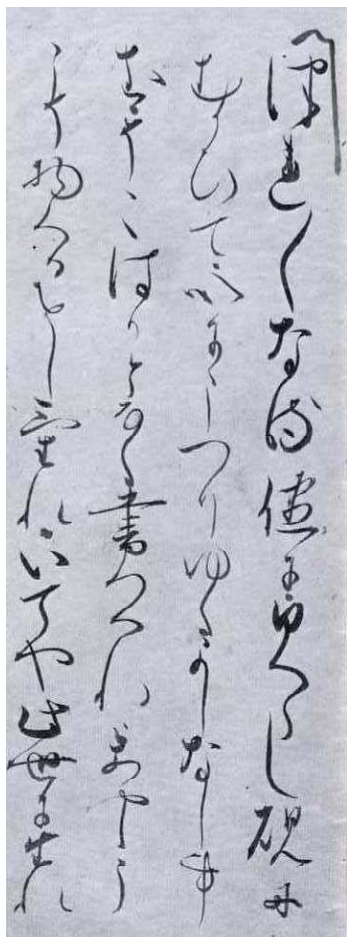 つれ〱なる儘に日くらし硯に
むかひて心にうつりゆくよしなし事
をそこはかとなく書つくれはあやしう
こそ物くるをしけれいてや此世に生れ